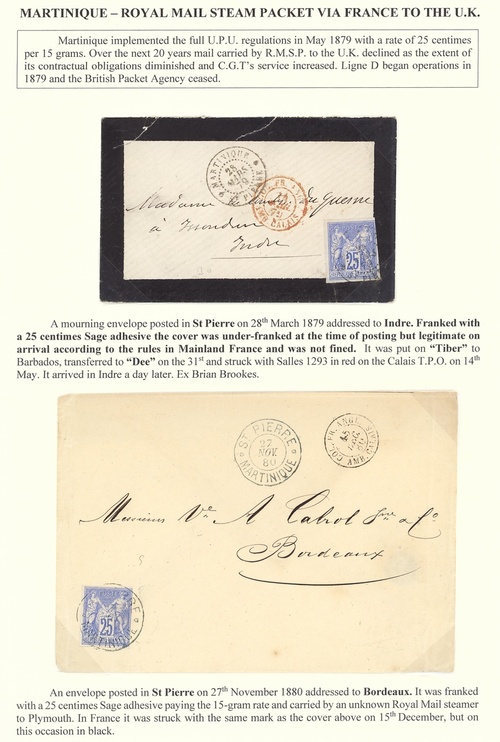 MARTINIQUE – ROYAL MAIL STEAM PACKET VIA FRANCE TO THE U.K.
Martinique implemented the full U.P.U. regulations in May 1879 with a rate of 25 centimes
per 15 grams. Over the next 20 years mail carried by R.M.S.P. to the U.K. declined as the extent of
its contractual obligations diminished and C.G.T's service increased. Ligne D began operations in
1879 and the British Packet Agency ceased.
MARTINIQUE
28
MARS
79
CALAIS
Madame
Duquesne
à
Indre
25
A mourning envelope posted in St Pierre on 28th March 1879 addressed to Indre. Franked with
a 25 centimes Sage adhesive the cover was under-franked at the time of posting but legitimate on
arrival according to the rules in Mainland France and was not fined. It was put on "Tiber" to
Barbados, transferred to "Dee" on the 31st and struck with Salles 1293 in red on the Calais T.P.O. on 14th
May. It arrived in Indre a day later. Ex Brian Brookes.
ST PIERRE
27
NOV
80
MARTINIQUE
COL. FR. ANGL.
AMB. CALAIS
Messieurs Ve A Cabrol Jne & Co
Bordeaux
25
MARTINIQUE
An envelope posted in St Pierre on 27th November 1880 addressed to Bordeaux. It was franked
with a 25 centimes Sage adhesive paying the 15-gram rate and carried by an unknown Royal Mail steamer
to Plymouth. In France it was struck with the same mark as the cover above on 15th December, but on
this occasion in black.